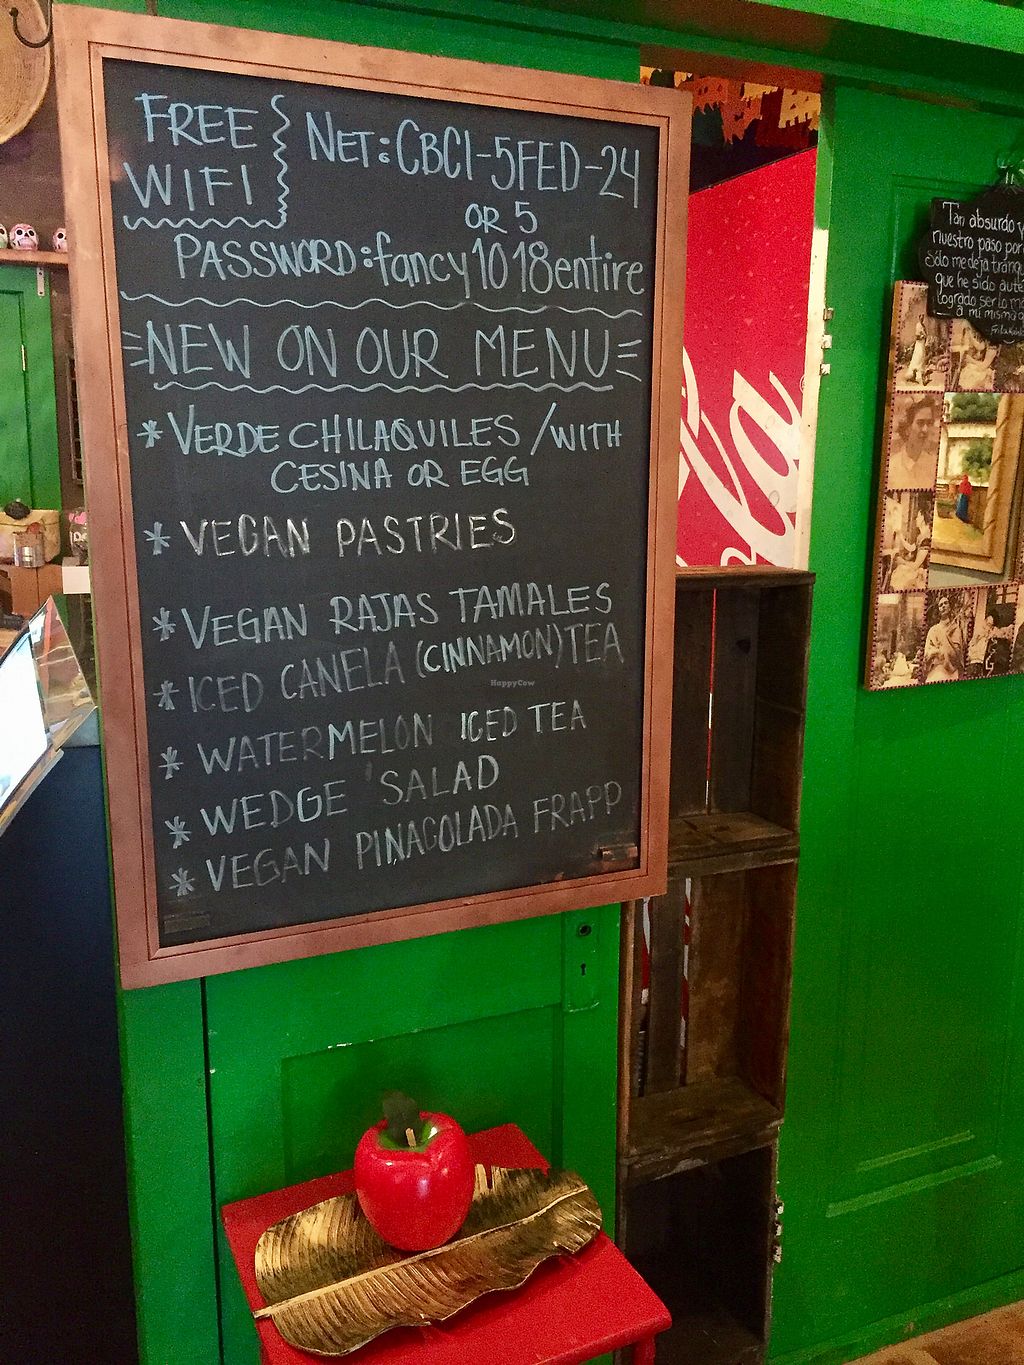 FREE
WIFI
NET: CBCI-5FED-24
OR 5
PASSWORD: fancy1018entire
NEW ON OUR MENU
* VERDE CHILAQUILES / WITH
CESINA OR EGG
* VEGAN PASTRIES
* VEGAN RAJAS TAMALES
* ICED CANELA (CINNAMON) TEA
* WATERMELON ICED TEA
* WEDGE SALAD
* VEGAN PINACOLADA FRAPP
HappyCow
la
Tan absurdo y
nuestro paso por
sólo me deja tranqu
que he sido auté
logrado ser lo m
a mi misma